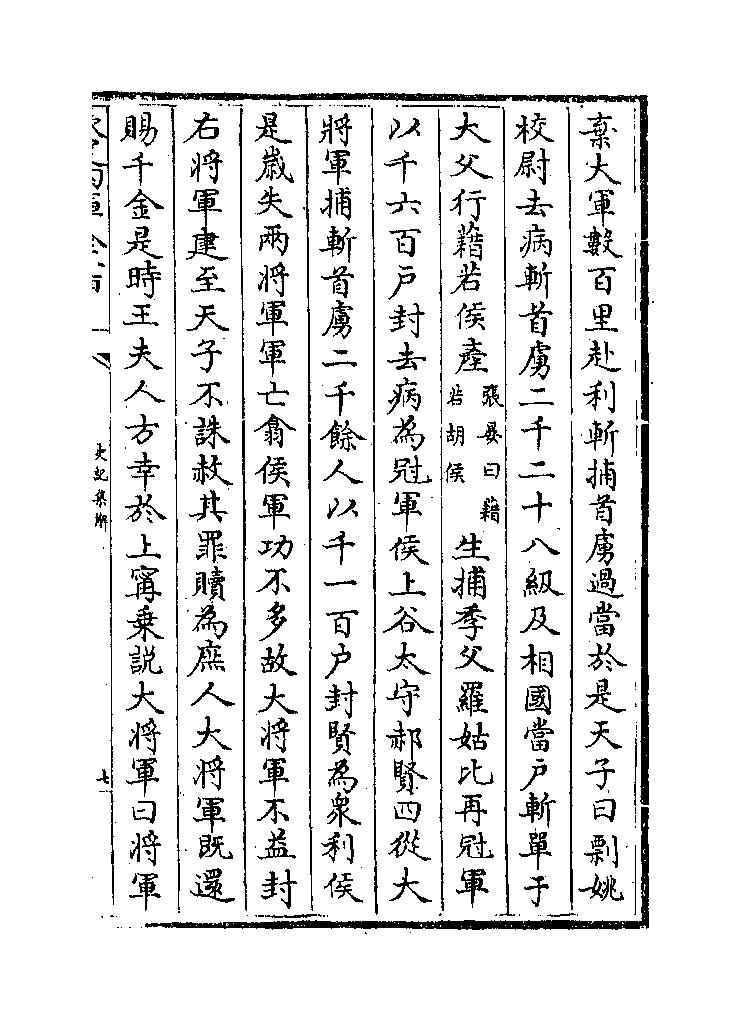 棄大軍數百里赴利斬捕首虜過當於是天子曰剽姚
校尉去病斬首虜二千二十八級及相國當户斬單于
大父行藉若侯產張晏曰藉若胡侯生捕季父羅姑比再冠軍
以千六百户封去病為冠軍侯上谷太守郝賢四從大
將軍捕斬首虜二千餘人以千一百户封賢為衆利侯
是歲失兩將軍軍亡翕侯軍功不多故大將軍不益封
右將軍建至天子不誅赦其罪贖為庶人大將軍既還
賜千金是時王夫人方幸於上甯乗說大將軍曰將軍
史記集解
七